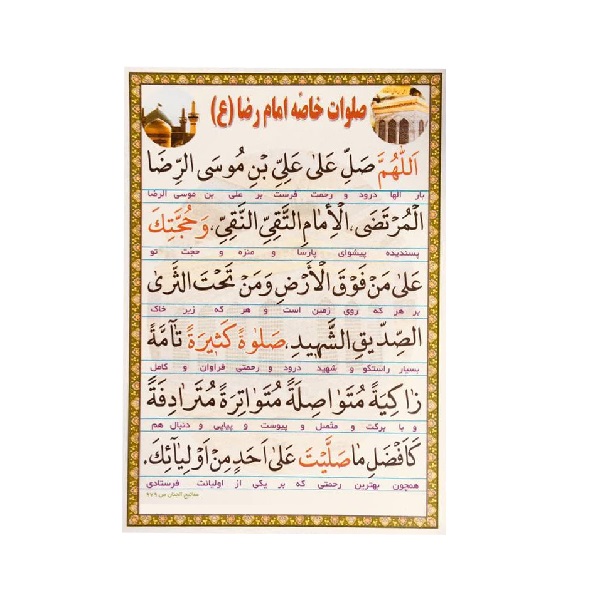 صلوات خاصّه امام رضا (ع)
اَللّٰهُمَّ صَلِّ عَلیٰ عَلِیِّ بْنِ مُوسَی الرِّضَا
بار الها درود و رحمت فرست بر علی بن موسی الرضا
الْمُرْتَضَی، الْأِمَامِ التَّقِیِّ النَّقِیِّ، وَ حُجَّتِكَ
پسندیده پیشوای پارسا و منزه و حجت تو
عَلیٰ مَنْ فَوْقَ الْأَرْضِ وَ مَنْ تَحْتَ الثَّریٰ
بر هر که روی زمین است و هر که زیر خاک
الصِّدّیقِ الشَّهیدِ، صَلوٰةً کَثیرَةً تٰآمَّةً
بسیار راستگو و شهید درود و رحمتی فراوان و کامل
زٰاکِیَةً مُتَوٰاصِلَةً مُتَوٰاتِرَةً مُتَرٰادِفَةً
و با برکت و متصل و پیوست و پیاپی و دنبال هم
کَاَفْضَلِ مٰا صَلَّیْتَ عَلیٰ اَحَدٍ مِنْ اَوْلِیٰآئِكَ.
همچون بهترین رحمتی که بر یکی از اولیائت فرستادی
مفاتیح الجنان ص ۴۷۹